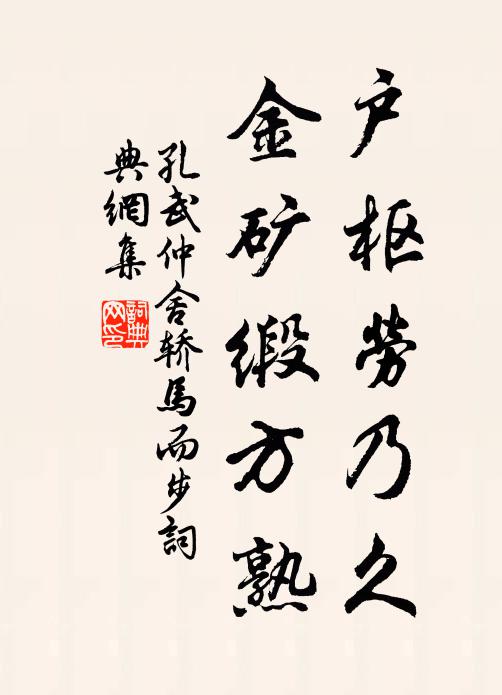 户枢劳乃久
金矿缎方熟
孔武仲舍轿馬而步詞
典網集
詞典
网印